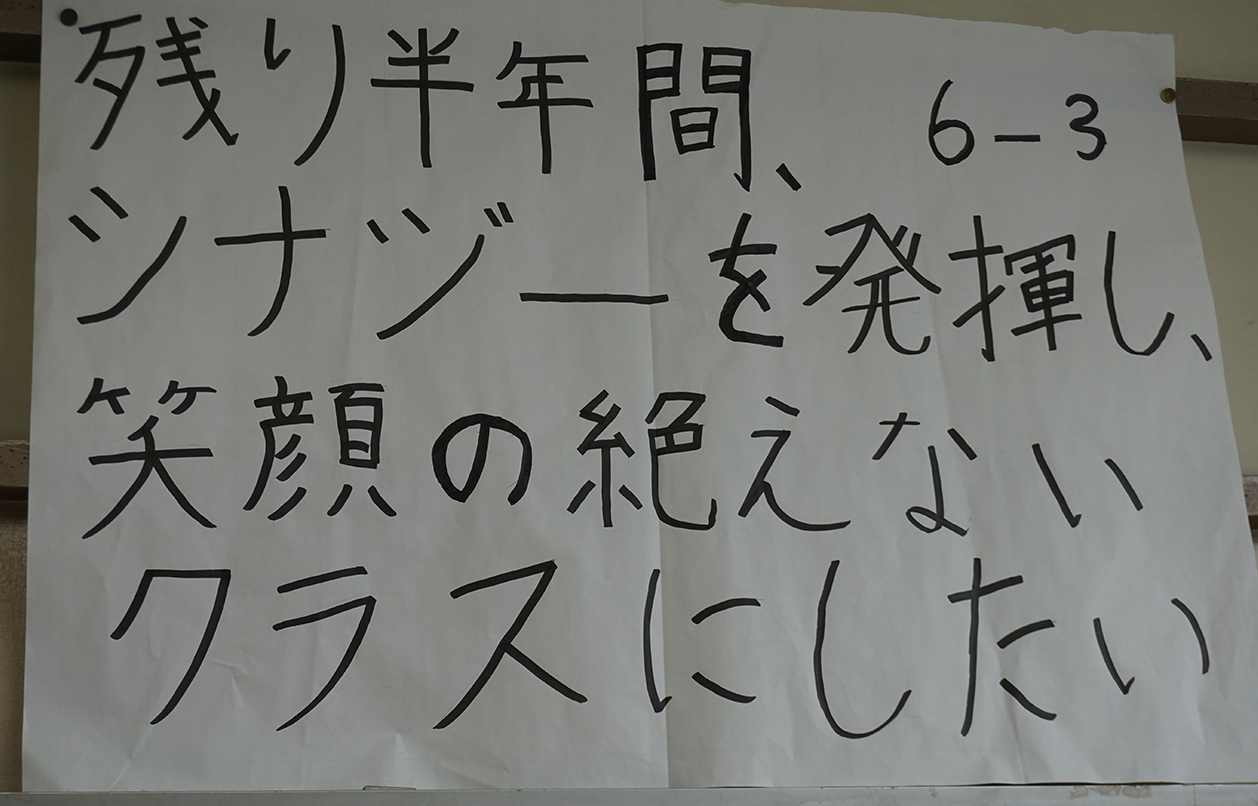 残り半年間、 6-3
シナジーを発揮し、
笑顔の絶えない
クラスにしたい